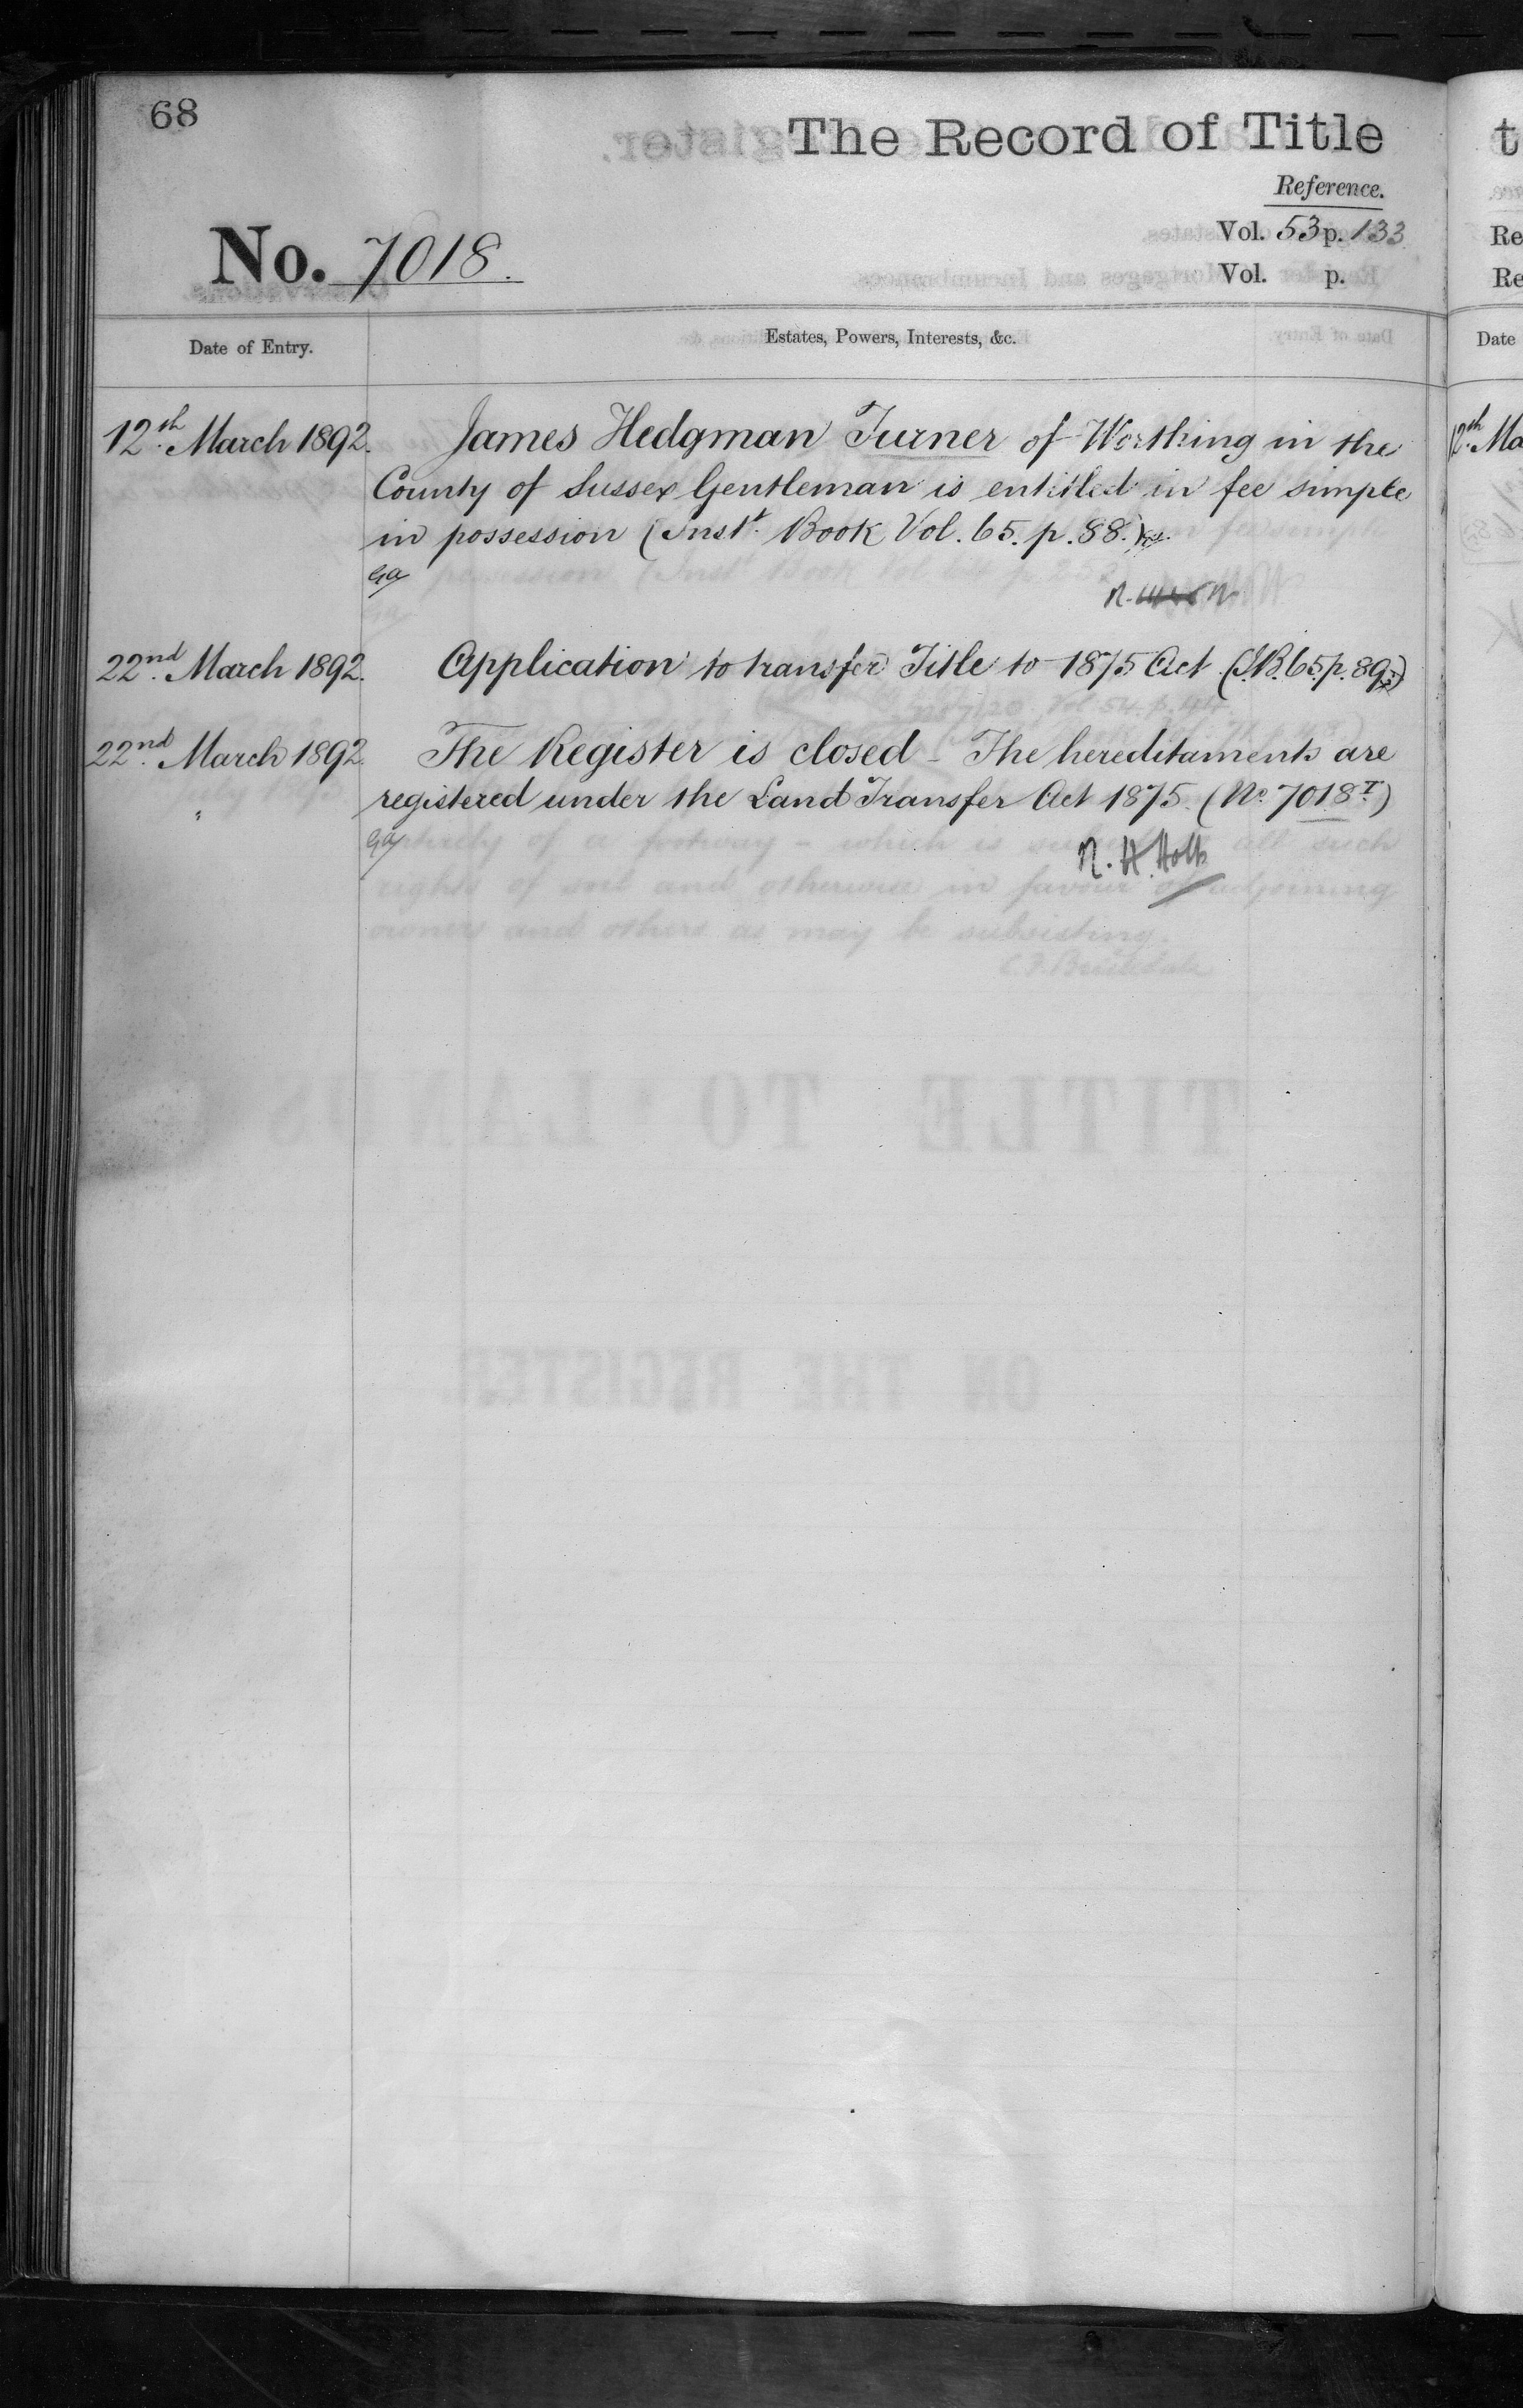 68
The Record of Title
Reference.
No. 7018.
Vol. 53 p. 133
Vol. p.
Date of Entry.
Estates, Powers, Interests, &c.
12th March 1892.
James Hedgman Turner of Worthing in the
County of Sussex Gentleman is entitled in fee simple
in possession (Inst. Book Vol. 65. p. 88.)
Ga
22nd March 1892.
Application to transfer Title to 1875 Act (I.B. 65. p. 89.)
22nd March 1892.
The Register is closed - The hereditaments are
"
registered under the Land Transfer Act 1875. (No. 7018 I)
Ga
N. H. Holt
t
Re
Re
Date
12th Ma